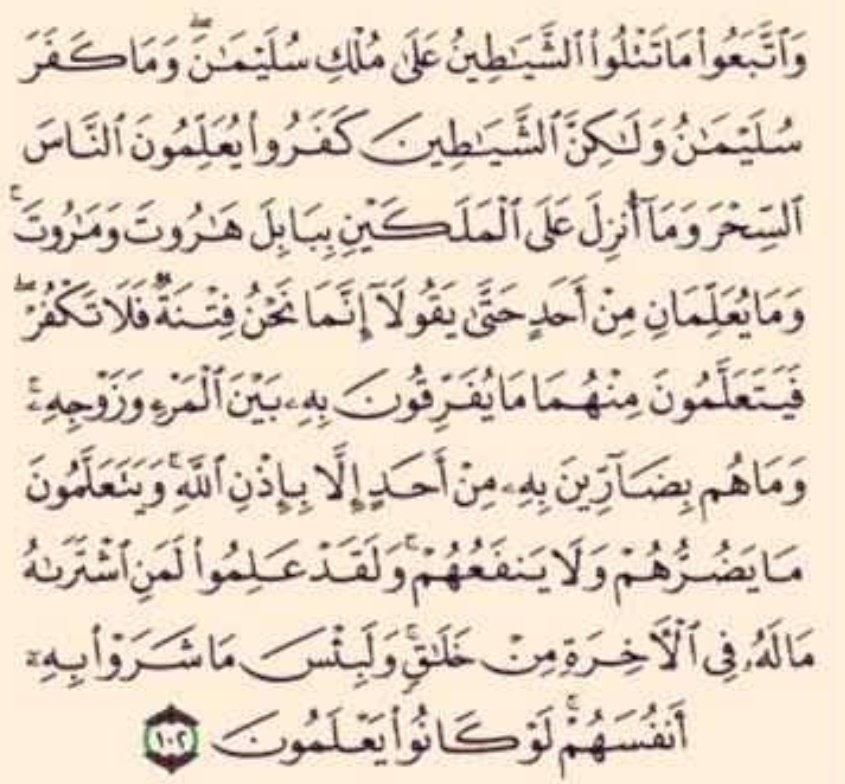 وَٱتَّبَعُوا۟ مَا تَتْلُوا۟ ٱلشَّيَـٰطِينُ عَلَىٰ مُلْكِ سُلَيْمَـٰنَ ۖ وَمَا كَفَرَ
سُلَيْمَـٰنُ وَلَـٰكِنَّ ٱلشَّيَـٰطِينَ كَفَرُوا۟ يُعَلِّمُونَ ٱلنَّاسَ
ٱلسِّحْرَ وَمَآ أُنزِلَ عَلَى ٱلْمَلَكَيْنِ بِبَابِلَ هَـٰرُوتَ وَمَـٰرُوتَ ۚ
وَمَا يُعَلِّمَانِ مِنْ أَحَدٍ حَتَّىٰ يَقُولَآ إِنَّمَا نَحْنُ فِتْنَةٌ فَلَا تَكْفُرْ ۖ
فَيَتَعَلَّمُونَ مِنْهُمَا مَا يُفَرِّقُونَ بِهِۦ بَيْنَ ٱلْمَرْءِ وَزَوْجِهِۦ ۚ
وَمَا هُم بِضَآرِّينَ بِهِۦ مِنْ أَحَدٍ إِلَّا بِإِذْنِ ٱللَّهِ ۚ وَيَتَعَلَّمُونَ
مَا يَضُرُّهُمْ وَلَا يَنفَعُهُمْ ۚ وَلَقَدْ عَلِمُوا۟ لَمَنِ ٱشْتَرَىٰهُ
مَا لَهُۥ فِى ٱلْـَٔاخِرَةِ مِنْ خَلَـٰقٍ ۚ وَلَبِئْسَ مَا شَرَوْا۟ بِهِۦٓ
أَنفُسَهُمْ ۚ لَوْ كَانُوا۟ يَعْلَمُونَ ١٠٢